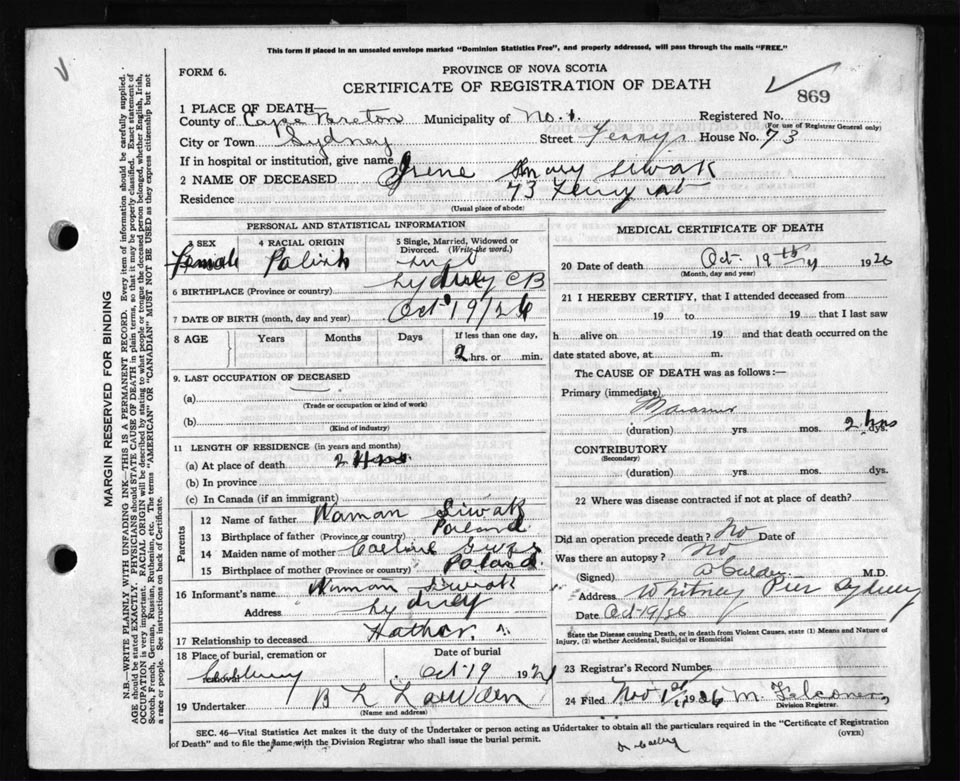 This form if placed in an unsealed envelope marked "Dominion Statistics Free", and properly addressed, will pass through the mails "FREE."
FORM 6.
PROVINCE OF NOVA SCOTIA
CERTIFICATE OF REGISTRATION OF DEATH
869
1 PLACE OF DEATH—
County of Cape Breton Municipality of No. 1. Registered No.
(For use of Registrar General only)
City or Town Sydney Street Ferry House No. 73
If in hospital or institution, give name
2 NAME OF DECEASED Irene Mary Siwak
Residence 73 Ferry st
(Usual place of abode)
PERSONAL AND STATISTICAL INFORMATION
3 SEX 4 RACIAL ORIGIN 5 Single, Married, Widowed or Divorced. (Write the word.)
Female Polish
6 BIRTHPLACE (Province or country) Sydney CB
7 DATE OF BIRTH (month, day and year) Oct 19/26
8 AGE Years Months Days If less than one day, 2 hrs. or min.
9. LAST OCCUPATION OF DECEASED
(a)
(Trade or occupation or kind of work)
(b)
(Kind of industry)
11 LENGTH OF RESIDENCE (in years and months)
(a) At place of death 2 Hrs
(b) In province
(c) In Canada (if an immigrant)
Parents
12 Name of father Siwak
13 Birthplace of father (Province or country) Poland
14 Maiden name of mother
15 Birthplace of mother (Province or country) Poland
16 Informant's name Siwak
Address Sydney
17 Relationship to deceased Father
18 Place of burial, cremation or removal Date of burial
Oct 19 192
19 Undertaker B L
(Name and address)
MEDICAL CERTIFICATE OF DEATH
20 Date of death Oct. 19th 1926
(Month, day and year)
21 I HEREBY CERTIFY, that I attended deceased from
19 to 19 that I last saw
h alive on 19 and that death occurred on the
date stated above, at m.
The CAUSE OF DEATH was as follows:—
Primary (immediate)
Marasmus
(duration) yrs mos. 2 hrs dys.
CONTRIBUTORY
(Secondary)
(duration) yrs mos. dys.
22 Where was disease contracted if not at place of death?
Did an operation precede death? No Date of
Was there an autopsy? No
(Signed) M.D.
Address Whitney Pier Sydney
Date Oct 19/26
State the Disease causing Death, or in death from Violent Causes, state (1) Means and Nature of Injury, (2) whether Accidental, Suicidal or Homicidal
23 Registrar's Record Number
24 Filed Nov 1st 1926 M. Falconer
Division Registrar.
SEC. 46—Vital Statistics Act makes it the duty of the Undertaker or person acting as Undertaker to obtain all the particulars required in the "Certificate of Registration
of Death" and to file the same with the Division Registrar who shall issue the burial permit.
(OVER)
MARGIN RESERVED FOR BINDING
N.B.—WRITE PLAINLY WITH UNFADING INK—THIS IS A PERMANENT RECORD. Every item of information should be carefully supplied.
AGE should be stated EXACTLY. PHYSICIANS should STATE CAUSE OF DEATH in plain terms, so that it may be properly classified. Exact statement of
OCCUPATION is very important. RACIAL ORIGIN will be described by stating to what people or tongue the deceased person belonged, whether English, Irish,
Scotch, French, German, Russian, Ruthenian, etc. The terms "AMERICAN" OR "CANADIAN" MUST NOT BE USED as they express citizenship but not
a race or people. See instructions on back of Certificate.